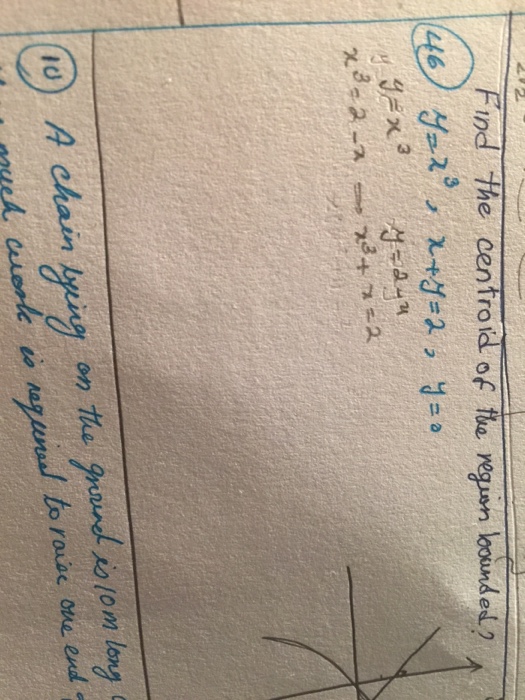 Find the centroid of the region bounded?
46 y=x³, x+y=2, y=0
y=x³ y=2-x
x³=2-x → x³+x=2
10 A chain lying on the ground is 10m long
much work is required to raise one end